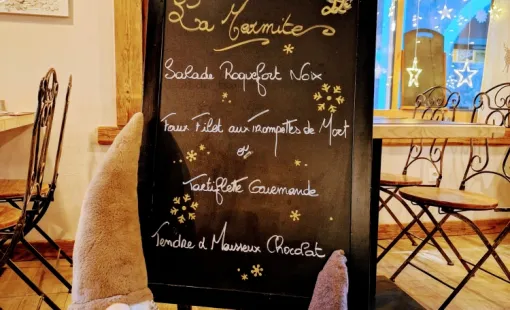 La Marmite
Salade Roquefort Noix
Faux Filet aux Trompettes de Mort
ou
Tartiflette Gourmande
Tendre & Mousseux Chocolat